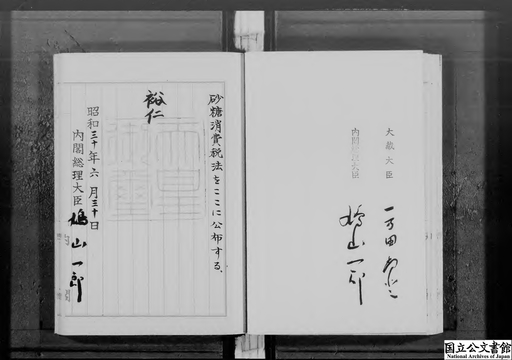 砂糖消費税法をここに公布する。
裕仁
天皇御璽
昭和三十年六月三十日
内閣総理大臣 鳩山一郎
大蔵大臣 一万田尚登
内閣総理大臣 鳩山一郎
国立公文書館
National Archives of Japan